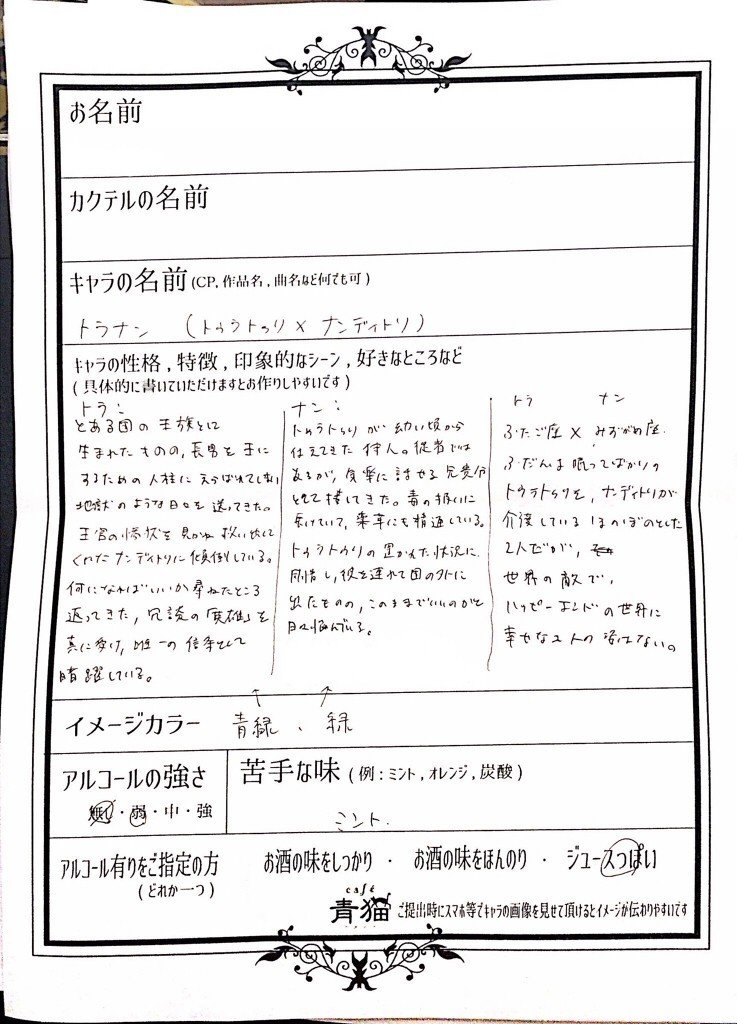 お名前
カクテルの名前
キャラの名前(CP,作品名,曲名など何でも可)
トラナン (トゥラトゥリ×ナンディトリ)
キャラの性格,特徴,印象的なシーン,好きなところなど
(具体的に書いていただけますとお作りしやすいです)
トラ:
とある国の王族として
生まれたものの、長男を王に
するための人柱にえらばれてしまい
地獄のような日々を送ってきた。
王宮の惨状を見かね救い出して
くれたナンディトリに傾倒している。
何になればいいか尋ねたところ
返ってきた、冗談の「英雄」を
真に受け、唯一の信条として
暗躍している。
ナン:
トゥラトゥリが幼い頃から
仕えてきた狩人。従者では
あるが、気楽に話せる兄貴分
として接してきた。毒の扱いに
長けていて、薬草にも精通している。
トゥラトゥリの置かれた状況に
同情し、彼を連れて国の外に
出たものの、このままでいいのかと
日々悩んでいる。
トラ ナン
ふたご座×みずがめ座.
ふだんは眠ってばかりの
トゥラトゥリを、ナンディトリが
介護しているほのぼのとした
2人だが、
世界の敵で、
ハッピーエンドの世界に
幸せな2人の姿はない。
イメージカラー 青緑、緑
アルコールの強さ
無し・弱・中・強
苦手な味(例:ミント,オレンジ,炭酸)
ミント.
アルコール有りをご指定の方
(どれか一つ)
お酒の味をしっかり・お酒の味をほんのり・ジュースっぽい
café
青猫
ご提出時にスマホ等でキャラの画像を見せて頂けるとイメージが伝わりやすいです